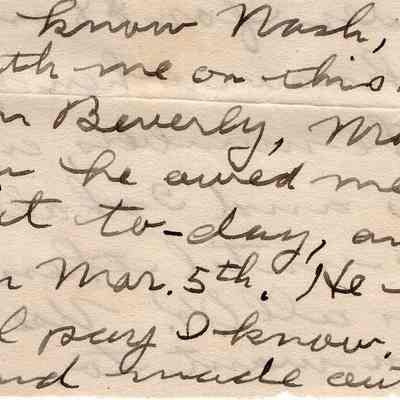 know Nash,
th me on this
Beverly,
he owed me
it to-day, an
Mar. 5th. He
l pay I know.
nd made out